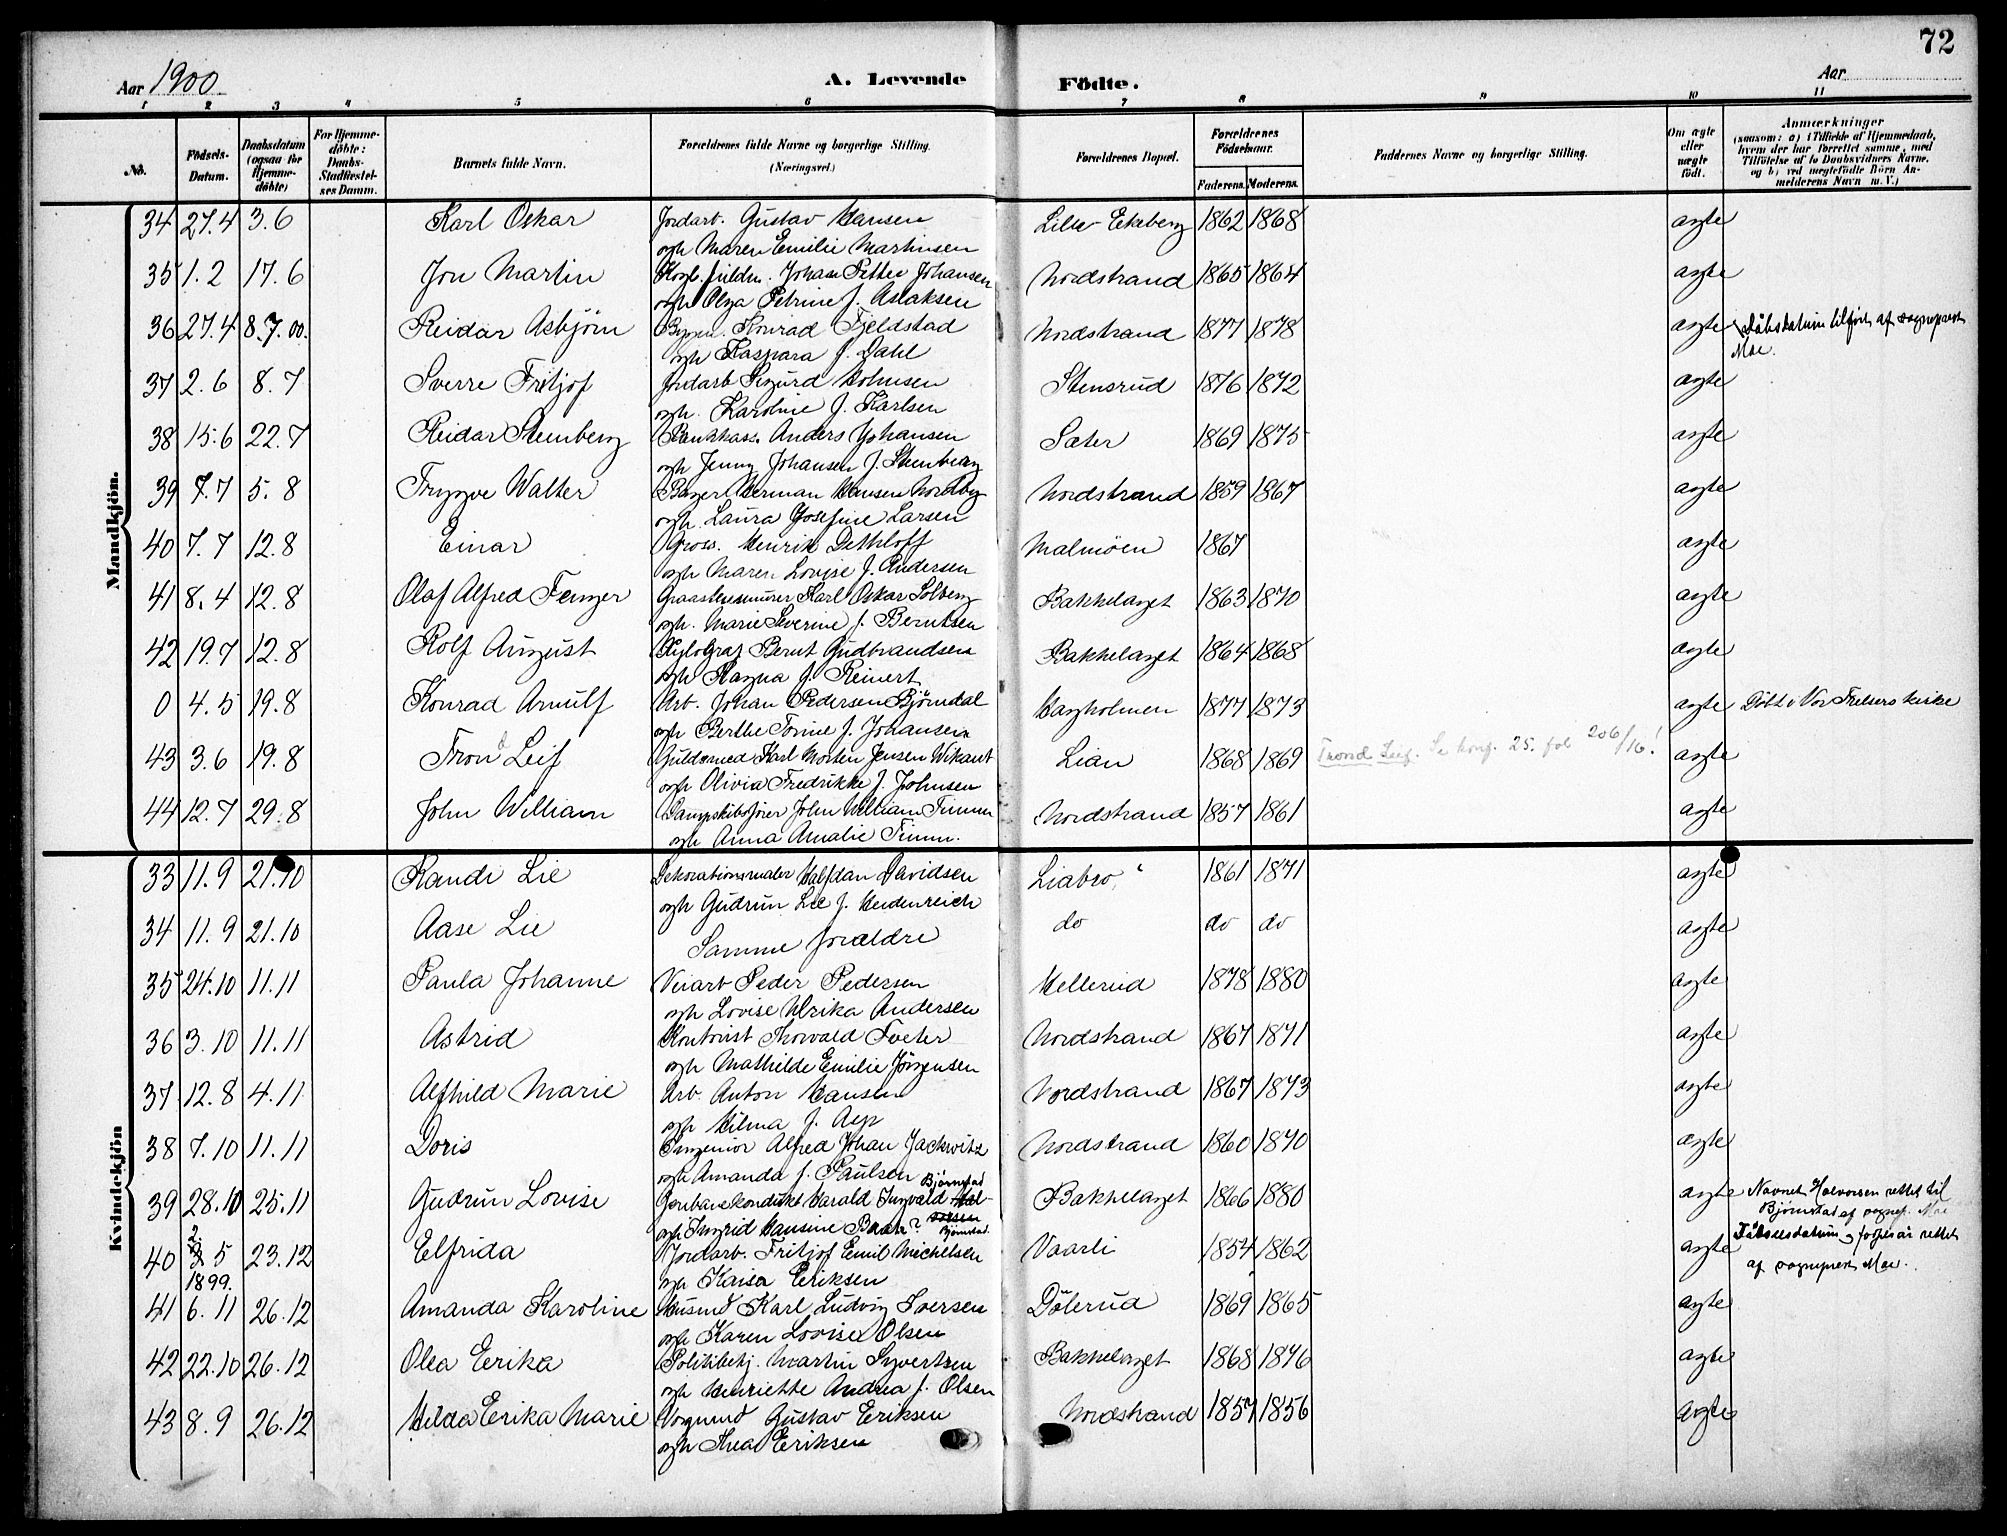 72
Aar 1900 A. Levende Födte. Aar
1 2 3 4 5 6 7 8 9 10 11
No. Födsels-Datum. Daabsdatum (ogsaa for Hjemme-döbte) For Hjemme-döbte: Daabs-Stadfæstel-ses Datum. Barnets fulde Navn. Forældrenes fulde Navne og borgerlige Stilling. (Næringsvei.) Forældrenes Bopæl. Forældrenes Födselsaar. Faderens. Moderens. Faddernes Navne og borgerlige Stilling. Om ægte eller uægte födt. Anmærkninger (saasom: a) i Tilfælde af Hjemmedaab, hvem der har forrettet samme, med Tilföielse af to Daabsvidners Navne, og b) ved uægtefödte Börn An-melderens Navn m. V.)
Mandkjön.
34 27.4 3.6 Karl Oskar Jordarb. Gustav Hansen Lille-Ekeberg 1862 1868 ægte
og h Maren Emilie Martinsen
35 1.2 17.6 Jon Martin Johan Petter Johansen Nordstrand 1865 1864 ægte
og h Olga Petrine f. Aslaksen
36 27.4 8.7.00. Reidar Asbjörn Konrad Fjeldstad Nordstrand 1877 1878 ægte Dåbsdatum tilført af sogneprest
og h Kaspara f. Dahl Moe.
37 2.6 8.7 Sverre Fritjof Jordarb Sigurd Holmsen Stensrud 1876 1872 ægte
og h. Karoline f. Karlsen
38 15.6 22.7 Reidar Stenberg Bankkass. Anders Johansen Sæter 1869 1875 ægte
og h Jenny Johansen f. Stenberg
39 7.7 5.8 Trygve Walter Bager Herman Hansen Nordby Nordstrand 1859 1867 ægte
og h. Laura Josefine Larsen
40 7.7 12.8 Einar Gross. Henrik Dethloff Malmöen 1867 ægte
og h Maren Lovise f. Andersen
41 8.4 12.8 Olaf Alfred Fenger Graastensmurer Karl Oskar Solberg Bækkelaget 1863 1870 ægte
og h. Marie Severine f. Berntsen
42 19.7 12.8 Rolf August Xylograf Bernt Gudbrandsen Bækkelaget 1864 1868 ægte
og h Ragna f. Reinert
0 4.5 19.8 Konrad Arnulf Arb. Johan Pedersen Björndal Hagholmen 1877 1873 ægte Döbt i Vor Frelsers kirke
og h Berthe Tonine f. Johansen
43 3.6 19.8 Tron d Leif Guldsmed Karl Morten Jensen Wikant Lian 1868 1869 Trond Leif. Se konf. 25. fol 206/16! ægte
og h Olivia Fredrikke f. Johnsen
44 12.7 29.8 John William Dampskibsförer John William Timm Nordstrand 1857 1861 ægte
og h Anna Amalie Timm.
Kvindekjön
33 11.9 21.10 Randi Lie Dekorationsmaler Halfdan Davidsen Liabro 1861 1871 ægte
og h Gudrun Lie f. Heidenreich
34 11.9 21.10 Aase Lie Samme forældre do do do ægte
35 24.10 11.11 Paula Johanne Veiarb Peder Pedersen Mellerud 1878 1880 ægte
og h Lovise Ulrika Andersen
36 3.10 11.11 Astrid Kontorist Thorvald Tveter Nordstrand 1867 1871 ægte
og h Mathilde Emilie Jörgensen
37 12.8 4.11 Alfhild Marie Arb. Anton Hansen Nordstrand 1867 1873 ægte
og h Hilma f. Asp
38 7.10 11.11 Doris Ingeniör Alfred Johan Jackwitz Nordstrand 1860 1870 ægte
og h Amanda f. Paulsen Björnstad
39 28.10 25.11 Gudrun Lovise Harald Ingvald Hal- Bækkelaget 1866 1880 ægte Navnet Halvorsen rettet til
og h Ingrid Hansine vorsen Björnstad Björnstad af sognep. Moe
40 2. 3 5 1899. 23.12 Elfrida Jordarb. Fritjof Emil Michelsen Vaarli 1854 1862 ægte Fødselsdatum og fødselsår rettet
og h Kaisa Eriksen af sogneprest Moe.
41 6.11 26.12 Amanda Karoline Husmd Karl Ludvig Iversen Dölerud 1869 1865 ægte
og h Karen Lovise Olsen
42 22.10 26.12 Olea Erika Politibetj. Martin Syvertsen Bækkelaget 1868 1876 ægte
og h Henriette Andrea f. Olsen
43 8.9 26.12 Hilda Erika Marie Vognmd Gustav Eriksen Nordstrand 1857 1856 ægte
og h Thea Eriksen